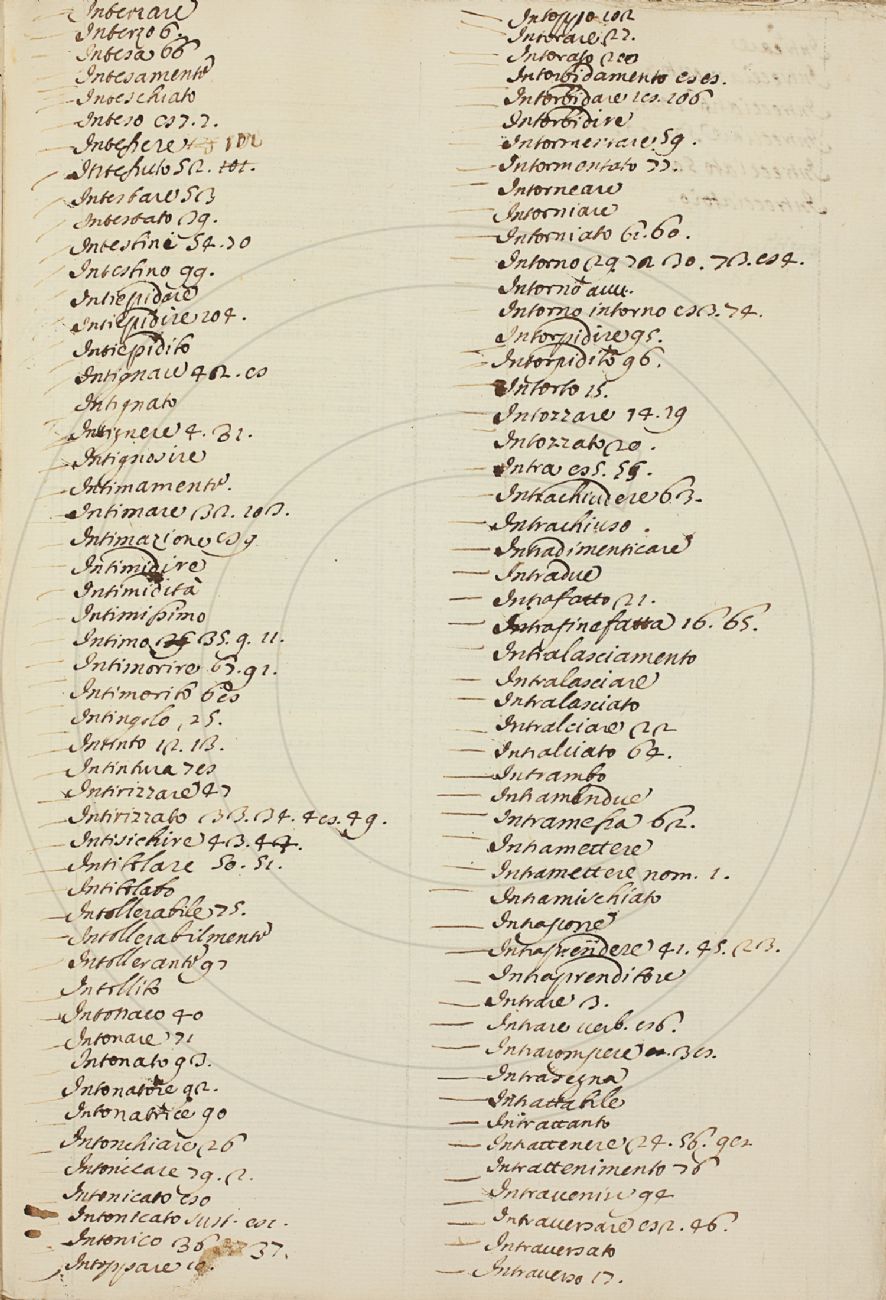 Interzare
Interzo 6.
Intesa 66
Intesamente
Inteschiato
Inteso
Intessere
Intessuto 52. 101.
Intestare 53
Intestato 39.
Intestine 54. 70
Intestino 99.
Intiepidare
Intiepidire 104.
Intiepidito
Intignare
Intignato
Intignere 4. 31.
Intignosire
Intimamente.
Intimare 32. 103.
Intimazione
Intimidire
Intimidità
Intimissimo
Intimo 35. 9. 11.
Intimorire 67. 91.
Intimorito
Intingolo 25.
Intinto 12. 13.
Intintura
Intirizzare 47
Intirizzato 33. 34. 48. 49.
Intisichire 43. 44.
Intitolare 50. 51.
Intitolato
Intollerabile 75.
Intollerabilmente
Intollerante 97
Intollito
Intonaco 40
Intonare 71
Intonato 93.
Intonatore 92.
Intonatrice 90
Intonchiare 26
Intonicare 79. 2.
Intonicato 80
Intonicato sust. 81.
Intonico 36 37.
Intoppare
Intoppo 102
Intorare 27.
Intorato 100
Intorbidamento 88.
Intorbidare 18. 106
Intorbidire
Intormentare 59.
Intormentato 77.
Intorneare
Intorniare
Intorniato 61. 60.
Intorno 29 72 30. 73. 84.
Intorno avv.
Intorno intorno 83. 74.
Intorpidire 95.
Intorpidito 96.
Intorto 15.
Intozzare 14. 19
Intozzato 20.
Intra 85. 55.
Intrachiudere 63.
Intrachiuso.
Intradimenticare
Intradue
Intrafatto 21.
Intrafinefatta 16. 65.
Intralasciamento
Intralasciare
Intralasciato
Intralciare 22
Intralciato 64.
Intrambo
Intramendue
Intramessa 62.
Intramettere
Intramettere nom. 1.
Intramischiato
Intraporre
Intraprendere 41. 45. 23.
Intraprenditore
Intrare 3.
Intrare verb. 86.
Intrarompere 38.
Intrasegna
Intrattabile
Intrattanto
Intrattenere 24. 56. 98
Intrattenimento 76
Intravenire 94
Intraversare 82. 46.
Intraversato
Intraverso 17.